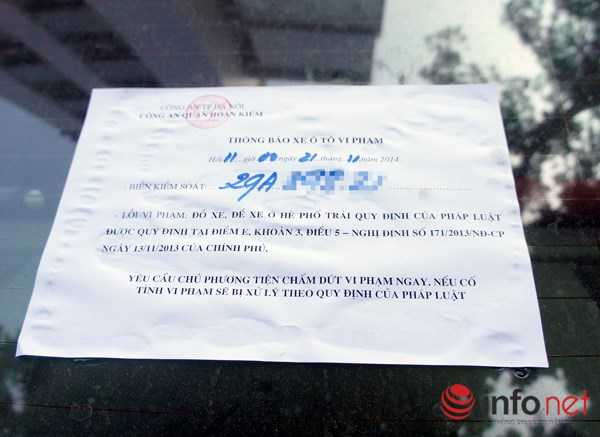 CÔNG AN TP HÀ NỘI
CÔNG AN QUẬN HOÀN KIẾM
THÔNG BÁO XE Ô TÔ VI PHẠM
Hồi 11 giờ 00 ngày 21 tháng 11 năm 2014
BIỂN KIỂM SOÁT: 29A
- LỖI VI PHẠM: ĐỖ XE, ĐỂ XE Ở HÈ PHỐ TRÁI QUY ĐỊNH CỦA PHÁP LUẬT
ĐƯỢC QUY ĐỊNH TẠI ĐIỂM E, KHOẢN 3, ĐIỀU 5 – NGHỊ ĐỊNH SỐ 171/2013/NĐ-CP
NGÀY 13/11/2013 CỦA CHÍNH PHỦ.
YÊU CẦU CHỦ PHƯƠNG TIỆN CHẤM DỨT VI PHẠM NGAY. NẾU CỐ
TÌNH VI PHẠM SẼ BỊ XỬ LÝ THEO QUY ĐỊNH CỦA PHÁP LUẬT
infonet